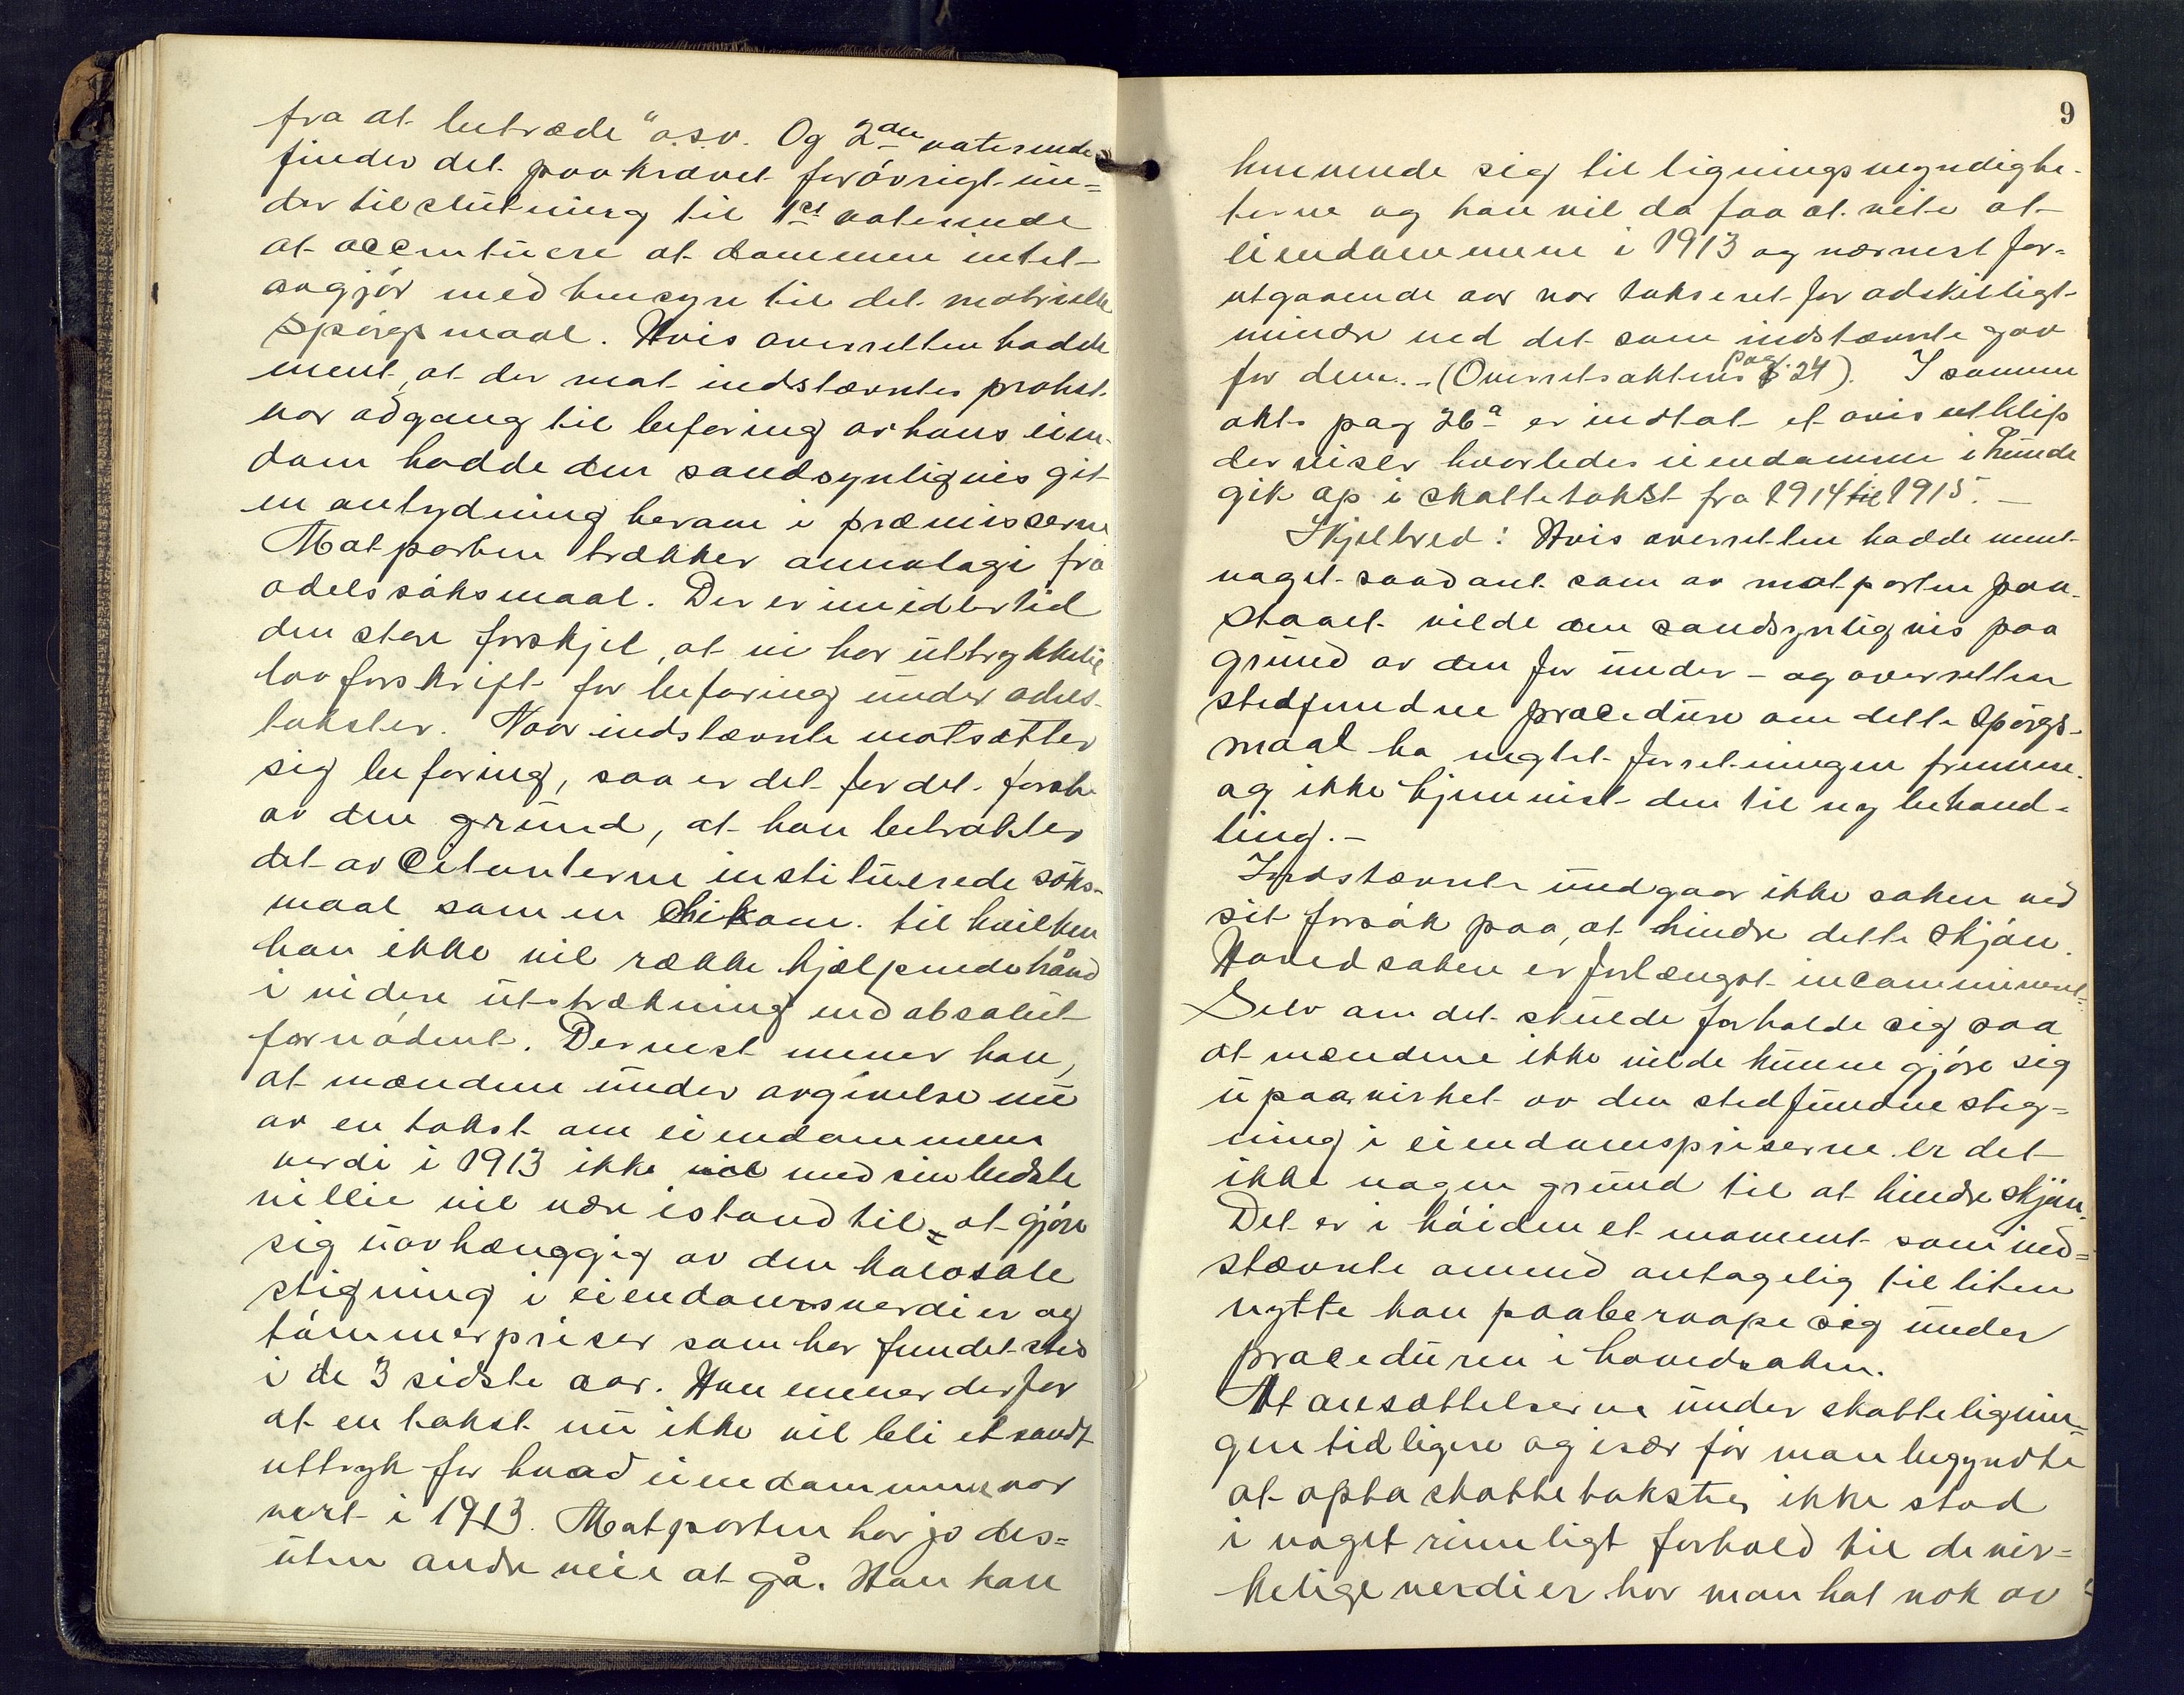 fra at betræde" o.s.v. Og 2den voterende
finder det paakrævet forøvrigt un=
der tilslutning til 1ste voterende
at accentuere at dommen intet
avgjør med hensyn til det matrielle
spørgsmaal. Hvis overretten hadde
ment, at der mot indstævntes protest
var adgang til befaring av hans eien-
dom hadde den sandsynligvis git
en antydning herom i præmisserne
Motparten trækker annalogi fra
odelssøksmaal. Der er imidlertid
den store forskjel, at vi har uttrykkelig
lovforskrift for befaring under odels-
takster. Naar indstævnte motsætter
sig befaring, saa er det for det første
av den grund, at han betrakter
det av Citanterne instituerede søks-
maal som en chikane til hvilken
han ikke vil række hjælpende hånd
i videre utstrækning end absolut
fornødent. Dernest mener han,
at mændene under avgivelse nu
av en takst om eiendommens
verdi i 1913 ikke vil med sin bedste
villie vil være istand til at gjøre
sig uavhænggig av den kolosale
stigning i eiendomsverdier og
tømmerpriser som har fundet sted
i de 3 sidste aar. Han mener derfor
at en takst nu ikke vil bli et sandt
uttryk for hvad eiendommene var
vert i 1913. Motparten har jo des=
uten andre veie at gå. Han kan
9
henvende sig til ligningsmyndighe-
terne og han vil da faa at vite at
eiendommene i 1913 og nærmest for=
utgaaende aar var takseret for adskilligt
mindre end det som indstævnte gav
for dem. - (Overretsaktens pag. 24). I samme
akts pag 26a er indtat et avisutklip
der viser hvorledes eiendommene i Tunde
gik op i skattetakst fra 1914 til 1915. -
Skjelbred: Hvis overretten hadde ment
noget saadant som av motparten paa-
staaet vilde den sandsynligvis paa
grund av den for under- og overretten
stedfundne procedure om dette spørgs-
maal ha negtet forretningen fremme
og ikke hjemvist den til ny behand-
ling. -
Indstævnte undgaar ikke saken ved
sit forsøk paa, at hindre dette skjøn.
Hovedsaken er forlængst incamineret.
Selv om det skulde forholde sig saa
at mændene ikke vilde kunne gjøre sig
upaavirket av den stedfundne stig=
ning i eiendomspriserne er det
ikke nogen grund til at hindre skjøn.
Det er i høiden et moment som ind=
stævnte omend antagelig til liten
nytte kan paaberaape sig under
proceduren i hovedsaken.
At ansættelserne under skatteligni-
gen tidligere og især før man begyndte
at opta skattetakster ikke stod
i noget rimeligt forhold til de vir=
kelige verdier har man hat nok av